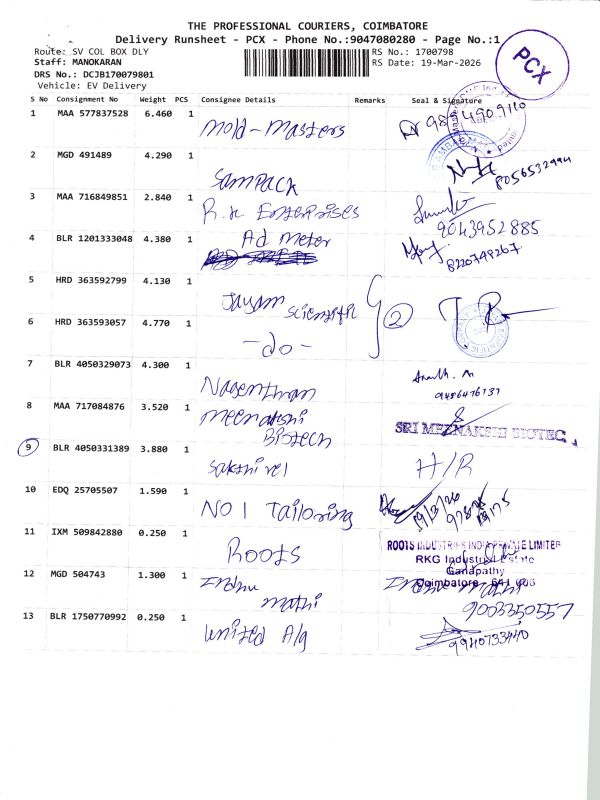 THE PROFESSIONAL COURIERS, COIMBATORE
Delivery Runsheet - PCX - Phone No.:9047080280 - Page No.:1
Route: SV COL BOX DLY RS No.: 1700798
Staff: MANOKARAN RS Date: 19-Mar-2026
DRS No.: DCJB170079801
Vehicle: EV Delivery
PCX
S No Consignment No Weight PCS Consignee Details Remarks Seal & Signature
1 MAA 577837528 6.460 1 Mold-Masters
2 MGD 491489 4.290 1 Sampack 8056532994
3 MAA 716849851 2.840 1 R.K Enterprises 9043952885
4 BLR 1201333048 4.380 1 Ad meter 8220748267
5 HRD 363592799 4.130 1 Jayam Scientific 2
6 HRD 363593057 4.770 1 -do-
7 BLR 4050329073 4.300 1 Nagenthran 9486476737
8 MAA 717084876 3.520 1 meenakshi Biotech SRI MEENAKSHI BIOTEC
9 BLR 4050331389 3.880 1 Sakthivel H/R
10 EDQ 25705507 1.590 1 NO 1 Tailoring 19/3/26
11 IXM 509842880 0.250 1 Roots ROOTS INDUSTRIES INDIA PRIVATE LIMITED
RKG Industrial Estate
Ganapathy
Coimbatore - 641 006
12 MGD 504743 1.300 1 Indhu mathi Indhu Mathi 9003350557
13 BLR 1750770992 0.250 1 United A/g 9940733440